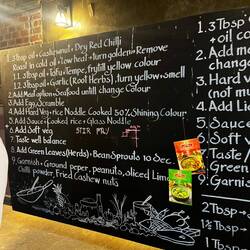 1. 3Tbsp oil + Cashewnut + Dry Red Chilli
Roast in cold oil + low heat + turn golden + Remove
1.1 3tbsp oil + Tofu + Tempe, fry till yellow colour
1.2 tbsp oil + Garlic (Root Herbs), turn yellow + smell
2. Add Meat option + Seafood untill change Colour
3. Add Egg, Scramble
4. Add Hard veg + Rice Noodle Cooked 50% Shining Colour
5. Add Sauce + Cooked rice + Glass Noodle
6. Add Soft veg
STIR FRY
7. Taste well balance
8. Add Green Leaves (Herbs) + BeanSprouts 10 Sec.
9. Garnish + Ground peper, peanuts, sliced Lime
Chilli powder, Fried Cashew nuts
1. 3 Tbsp
+ oil
2. Add
change
3. Hard
(not
4. Add
5. Sauce
6. Soft
7. Taste
8. Green
9. Garnish
2 Tbsp
1 Tbsp
1 Tbsp